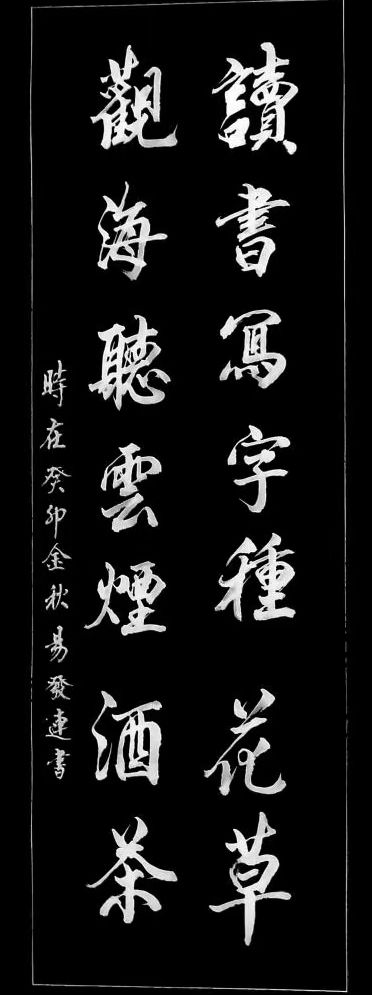 讀書寫字種花草
觀海聽雲煙酒茶
時在癸卯金秋易發連書